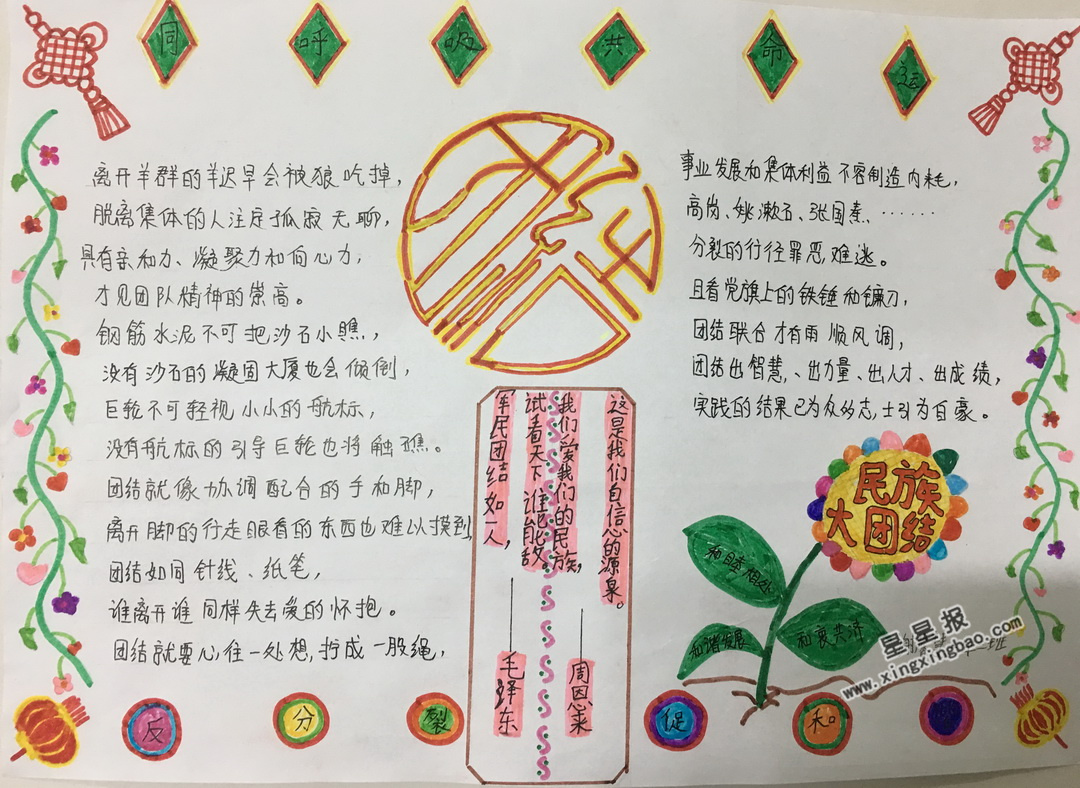 同呼吸共命运
离开羊群的羊迟早会被狼吃掉，
脱离集体的人注定孤寂无聊，
具有亲和力、凝聚力和向心力，
才见团队精神的崇高。
钢筋水泥不可把沙石小瞧，
没有沙石的凝固大厦也会倾倒，
巨轮不可轻视小小的航标，
没有航标的引导巨轮也将触礁。
团结就像协调配合的手和脚，
离开脚的行走眼看的东西也难以摸到
团结如同针线、纸笔，
谁离开谁同样失去爱的怀抱。
团结就要心往一处想，拧成一股绳，
事业发展和集体利益不容制造内耗，
高岗、姚漱石、张国焘、……
分裂的行径罪恶难逃。
且看党旗上的铁锤和镰刀，
团结联合才有雨顺风调，
团结出智慧、出力量、出人才、出成绩，
实践的结果已为众多志士引为自豪。
这是我们自信心的源泉。
我们爱我们的民族，
——周恩来
试看天下谁能敌。
军民团结如一人，
——毛泽东
民族
大团结
和睦相处
和谐发展
和衷共济
班
星星报
www.xingxingbao.com
反分裂促和。